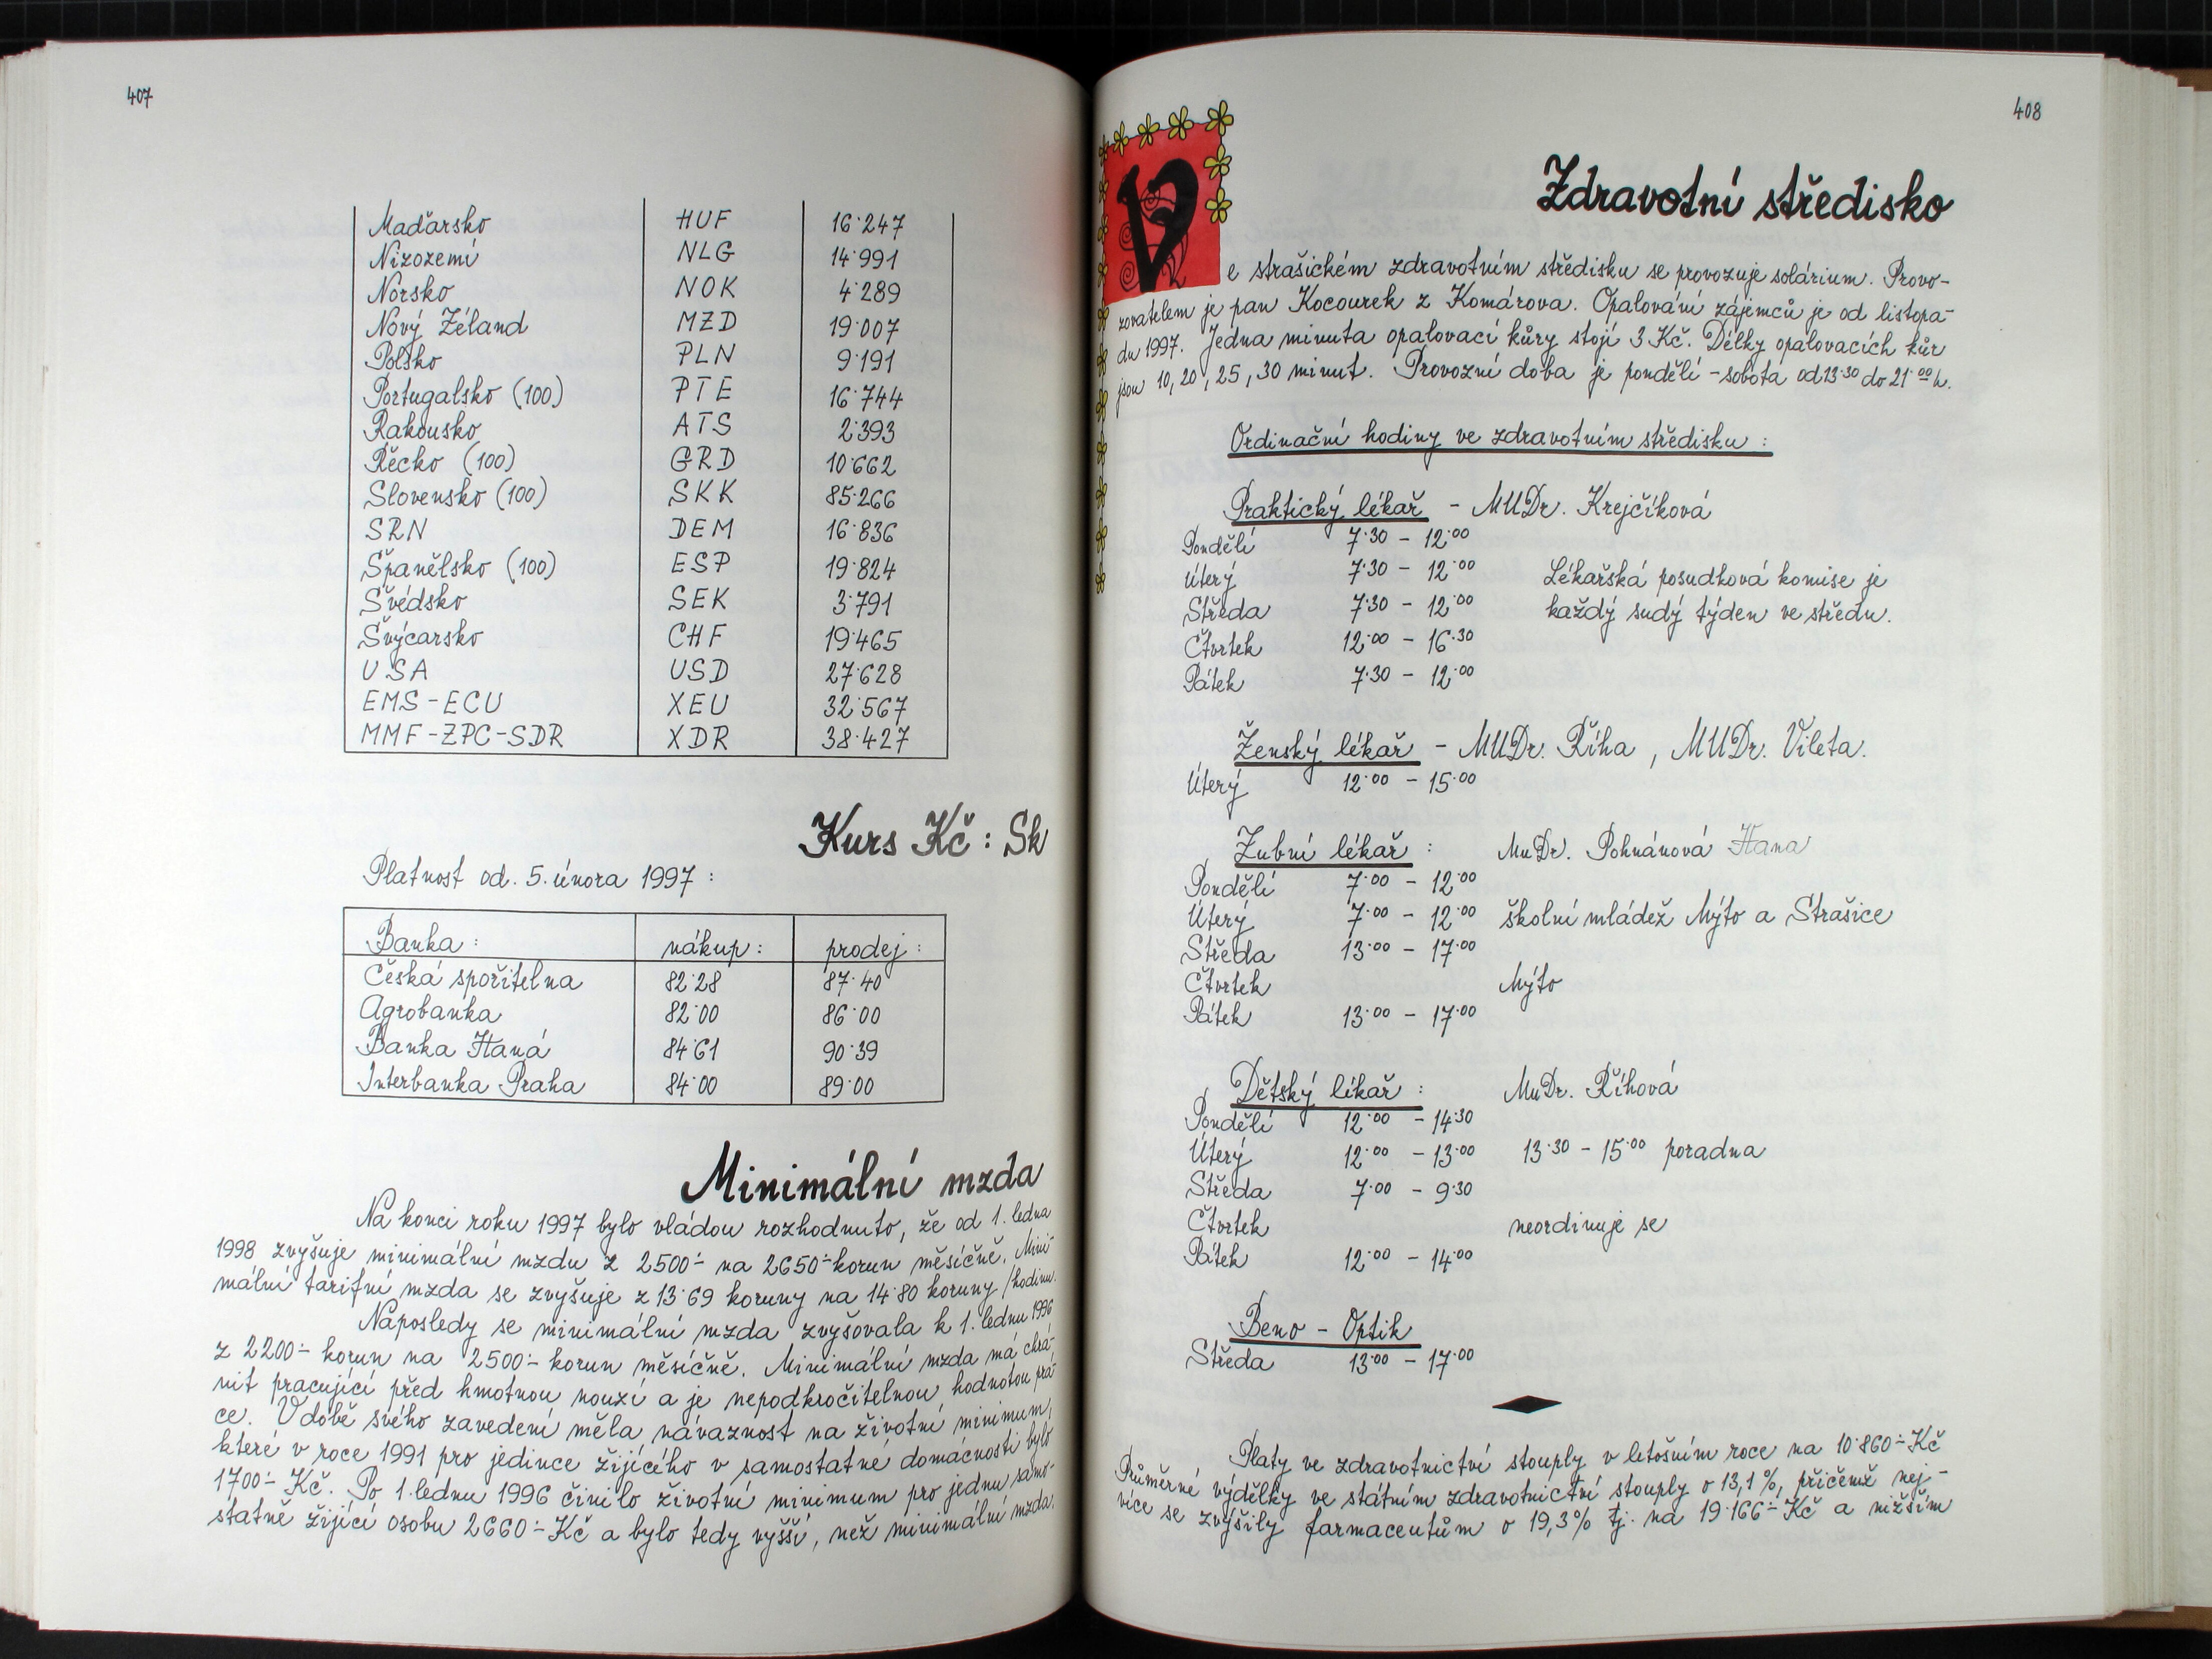 407
Maďarsko HUF 16·247
Nizozemí NLG 14·991
Norsko NOK 4·289
Nový Zéland MZD 19·007
Polsko PLN 9·191
Portugalsko (100) PTE 16·744
Rakousko ATS 2·393
Řecko (100) GRD 10·662
Slovensko (100) SKK 85·266
SRN DEM 16·836
Španělsko (100) ESP 19·824
Švédsko SEK 3·791
Švýcarsko CHF 19·465
USA USD 27·628
EMS-ECU XEU 32·567
MMF-ZPC-SDR XDR 38·427
Kurs Kč : Sk
Platnost od. 5. února 1997 :
Banka : nákup : prodej :
Česká spořitelna 82·28 87·40
Agrobanka 82·00 86·00
Banka Haná 84·61 90·39
Interbanka Praha 84·00 89·00
Minimální mzda
Na konci roku 1997 bylo vládou rozhodnuto, že od 1. ledna
1998 zvyšuje minimální mzdu z 2500·- na 2650·- korun měsíčně. Mini-
mální tarifní mzda se zvyšuje z 13·69 koruny na 14·80 koruny /hodinu.
Naposledy se minimální mzda zvyšovala k 1. lednu 1996
z 2200·- korun na 2500·- korun měsíčně. Minimální mzda má chrá-
nit pracující před hmotnou nouzí a je nepodkročitelnou hodnotou prá-
ce. V době svého zavedení měla návaznost na životní minimum,
které v roce 1991 pro jedince žijícího v samostatné domácnosti bylo
1700·- Kč. Po 1. lednu 1996 činilo životní minimum pro jednu samo-
statně žijící osobu 2660·- Kč a bylo tedy vyšší, než minimální mzda.
408
Zdravotní středisko
Ve strašickém zdravotním středisku se provozuje solárium. Provo-
zovatelem je pan Kocourek z Komárova. Opalování zájemců je od listopa-
du 1997. Jedna minuta opalovací kůry stojí 3 Kč. Délky opalovacích kůr
jsou 10, 20, 25, 30 minut. Provozní doba je pondělí - sobota od 13·30 do 21·00 h.
Ordinační hodiny ve zdravotním středisku :
Praktický lékař - MUDr. Krejčíková
Pondělí 7·30 - 12·00
Úterý 7·30 - 12·00 Lékařská posudková komise je
Středa 7·30 - 12·00 každý sudý týden ve středu.
Čtvrtek 12·00 - 16·30
Pátek 7·30 - 12·00
Ženský lékař - MUDr. Říha, MUDr. Vileta.
Úterý 12·00 - 15·00
Zubní lékař : MuDr. Pohnánová Hana
Pondělí 7·00 - 12·00
Úterý 7·00 - 12·00 školní mládež Mýto a Strašice
Středa 13·00 - 17·00
Čtvrtek Mýto
Pátek 13·00 - 17·00
Dětský lékař : MuDr. Říhová
Pondělí 12·00 - 14·30
Úterý 12·00 - 13·00 13·30 - 15·00 poradna
Středa 7·00 - 9·30
Čtvrtek neordinuje se
Pátek 12·00 - 14·00
Beno - Optik
Středa 13·00 - 17·00
Platy ve zdravotnictví stouply v letošním roce na 10·860·- Kč
Průměrné výdělky ve státním zdravotnictví stouply o 13,1 %, přičemž nej-
více se zvýšily farmaceutům o 19,3 % tj. na 19·166·- Kč a nižším